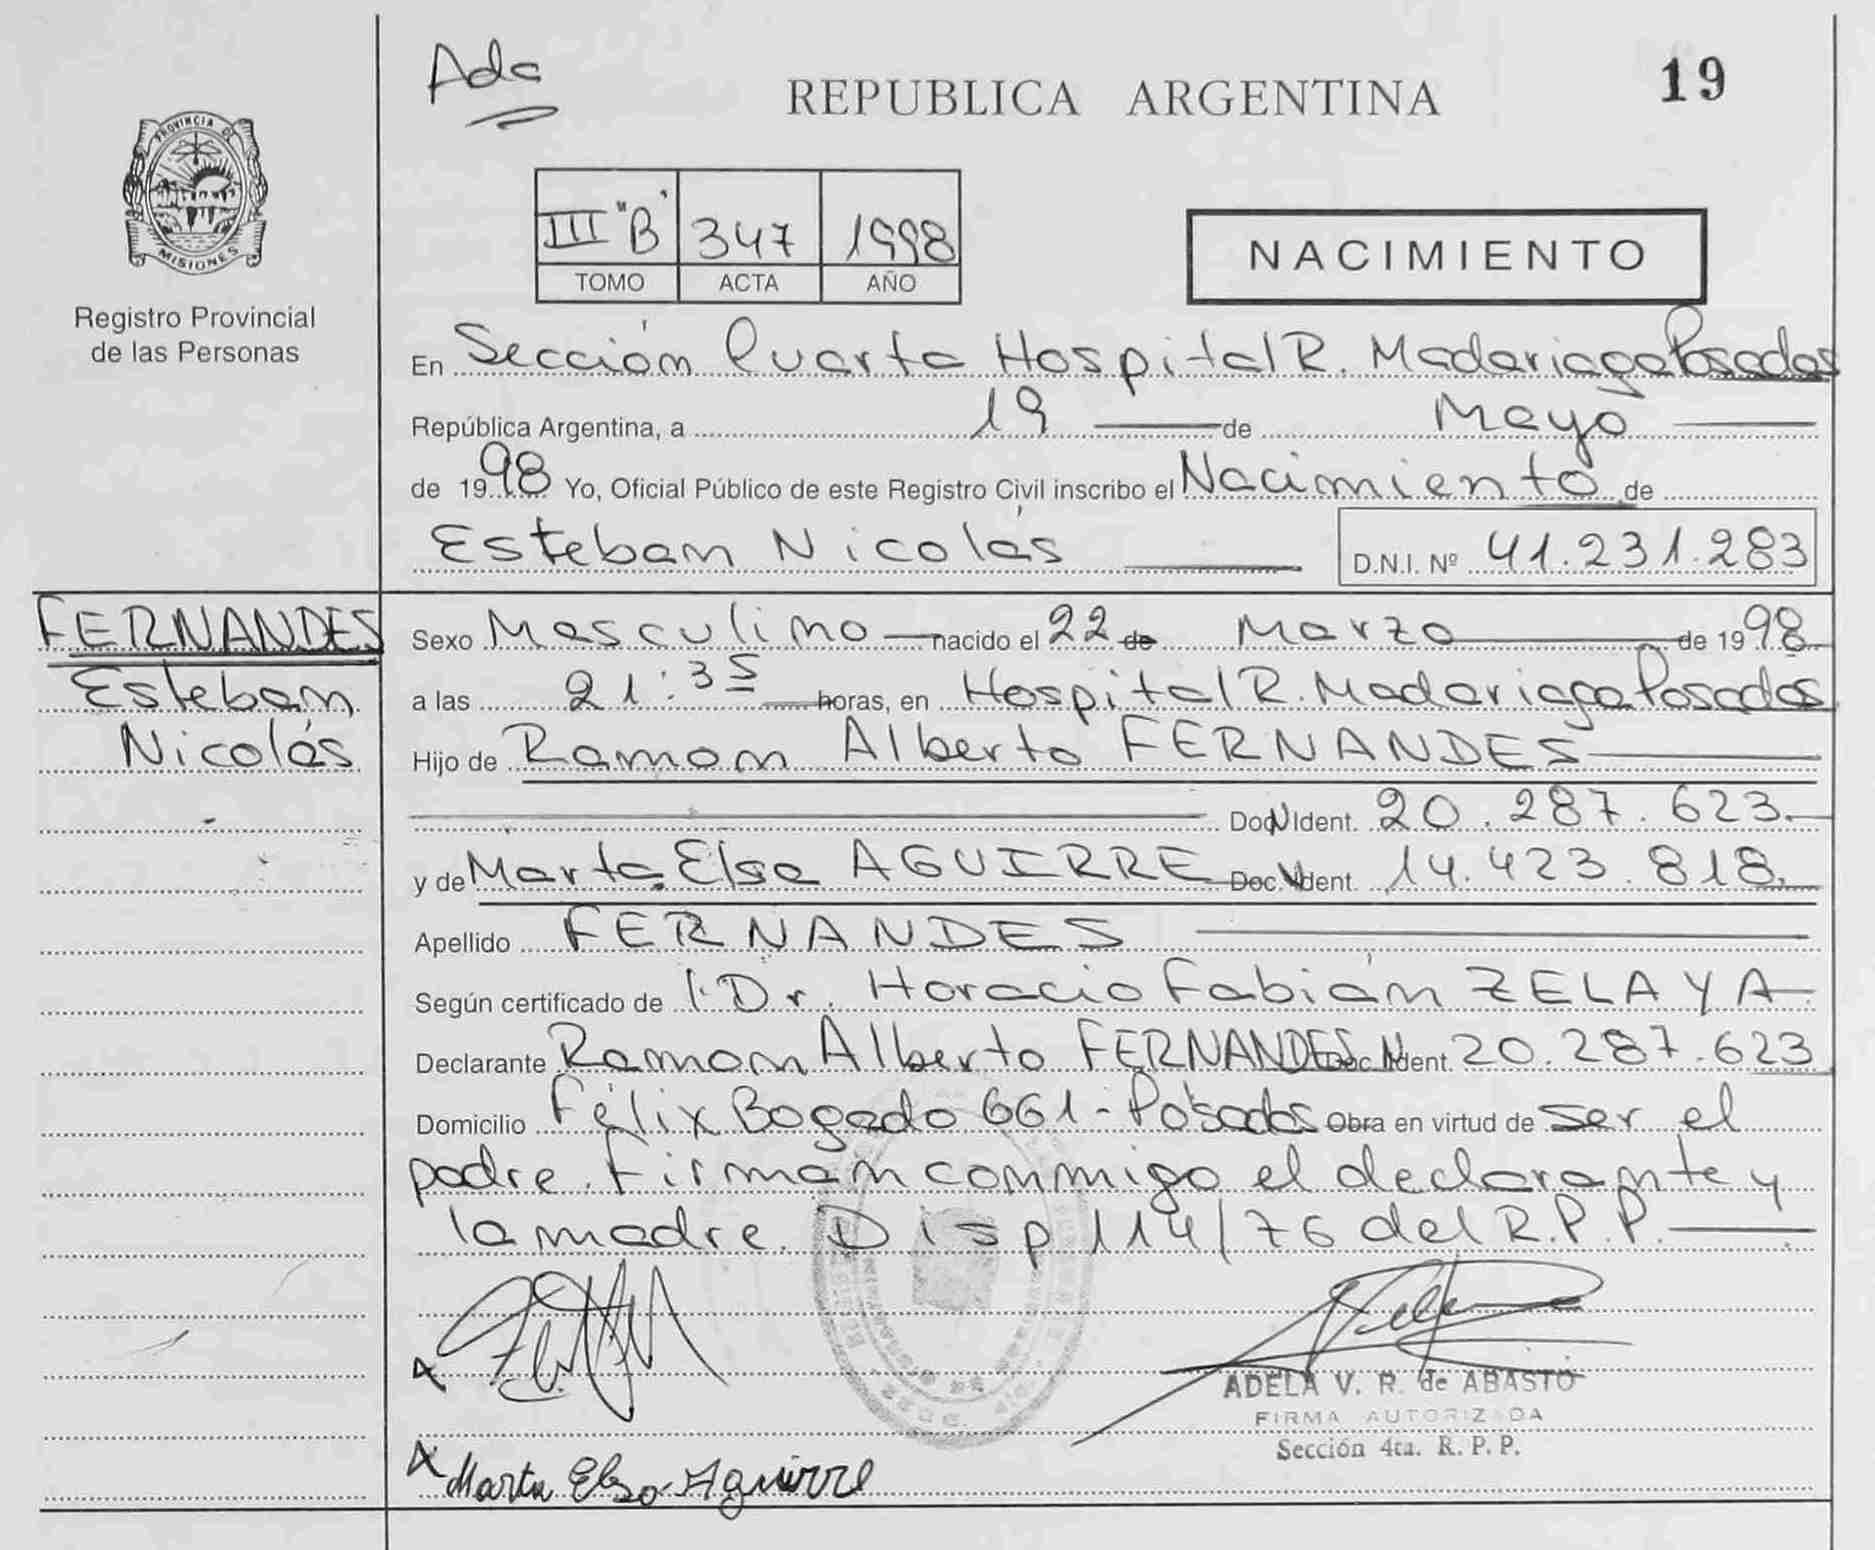 Ada
REPUBLICA ARGENTINA
19
PROVINCIA DE
MISIONES
Registro Provincial
de las Personas
III "B" 347 1998
TOMO ACTA AÑO
NACIMIENTO
En Sección Cuarta Hospital R. Madariaga Posadas
República Argentina, a 19 de Mayo
de 1998 Yo, Oficial Público de este Registro Civil inscribo el Nacimiento de
Esteban Nicolás D.N.I. Nº 41.231.283
FERNANDES
Esteban
Nicolás
Sexo Masculino nacido el 22 de Marzo de 1998
a las 21:35 horas, en Hospital R. Madariaga Posadas
Hijo de Ramon Alberto FERNANDES
Doc. Ident. 20.287.623.
y de Marta Elsa AGUIRRE Doc. Ident. 14.423.818.
Apellido FERNANDES
Según certificado de l. Dr. Horacio Fabián ZELAYA
Declarante Ramon Alberto FERNANDES Doc. Ident. 20.287.623
Domicilio Félix Bogado 661 - Posadas Obra en virtud de ser el
padre. Firman conmigo el declarante y
la madre. Disp 114/76 del R.P.P.
ADELA V. R. de ABASTO
FIRMA AUTORIZADA
Sección 4ta. R. P. P.
Marta Elsa Aguirre